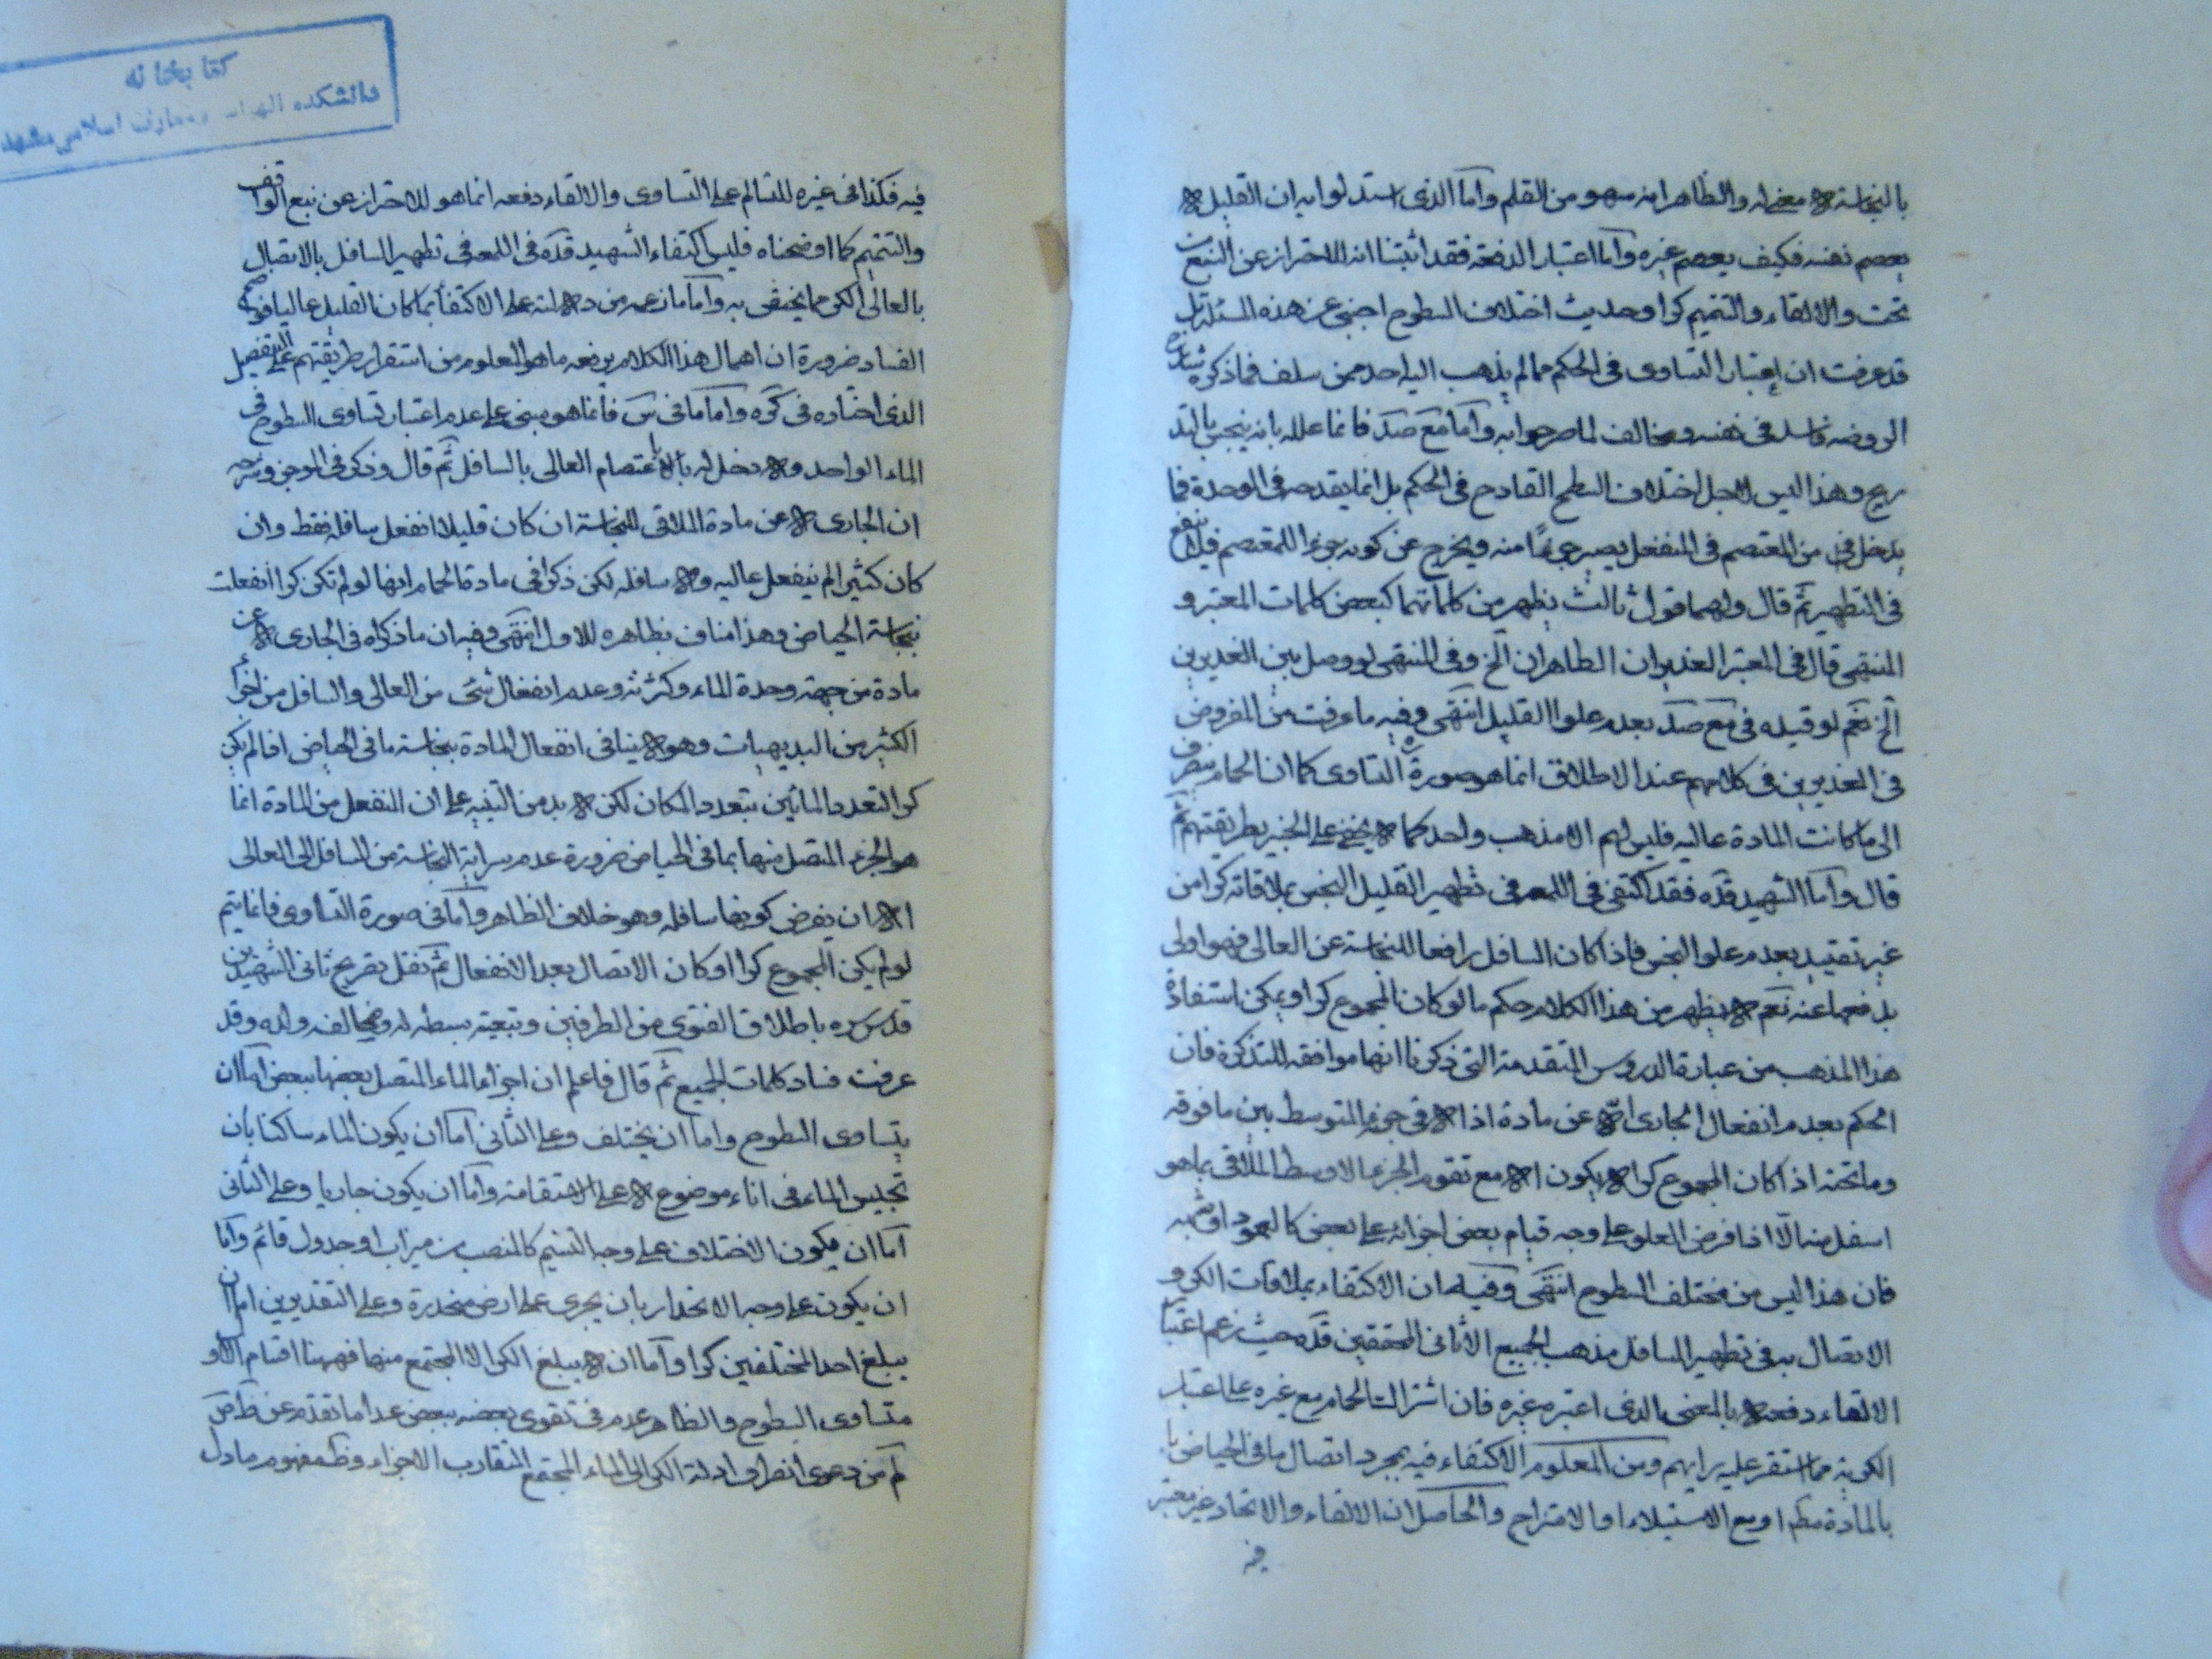 بالنجاسة لا معنى له والظاهر انه سهو من القلم واما الذى استدلوا به ان القليل لا
يعصم نفسه فكيف يعصم غيره واما اعتبار الدفعة فقد اثبتنا انه للاحتراز عن النبع من
تحت والالقاء والتتميم كرا وحديث اختلاف السطوح اجنبى عن هذه المسئلة بل
قد عرفت ان اعتبار التساوى فى الحكم مما لم يذهب اليه احد ممن سلف فما ذكره
الروضه فاسد فى نفسه ومخالف لما صرحوا به واما مع صد فانما علله بانه ينجس بالتد
ريج وهذا ليس لاجل اختلاف السطح القادح فى الحكم بل انما يقدح فى الوحدة فما
يدخل من المعتصم فى المنفعل يصير جزءا منه ويخرج عن كونه جزءا للمعتصم فلا ينفع
فى التطهير ثم قال ولهما قول ثالث يظهر من كلماتهما كبعض كلمات المعتبر و
المنتهى قال فى المعتبر الغديران الطاهران الخ وفى المنتهى لو وصل بين الغديرين
الخ نعم لو قيده فى مع صد بعدم علو القليل انتهى وفيه ما عرفت من المفروض
فى الغديرين فى كلامهم عند الاطلاق انما هو صورة التساوى كما ان الحمام ينصرف
الى ما كانت المادة عاليه فليس لهم الا مذهب واحد كما لا يخفى على الخبير بطريقتهم ثم
قال واما الشهيد قده فقد اكتفى فى اللمعه فى تطهير القليل النجس بملاقاته كرا من
غير تقييد بعدم علو النجس فاذا كان السافل رافعا للنجاسة عن العالى فهو اولى
بدفعها عنه نعم لا يظهر من هذا الكلام حكم ما لو كان المجموع كرا ويمكن استفادة
هذا المذهب من عبارة الدروس المتقدمة التى ذكرنا انها موافقه للتذكرة فان
الحكم بعدم انفعال الجارى لا عن مادة اذا لاقى جزؤه المتوسط بين ما فوقه
وما تحته اذا كان المجموع كرا لا يكون الا مع تقوم الجزء الاوسط الملاقى بما هو
اسفل منه الا اذا فرض العلو على وجه قيام بعض اجزائه على بعض كالعمود او شبهه
فان هذا ليس من مختلف السطوح انتهى وفيه ان الاكتفاء بملاقات الكر و
الاتصال به فى تطهير السافل مذهب الجميع الا ثانى المحققين قده حيث زعم اعتبا
الالقاء دفعة لا بالمعنى الذى اعتبره غيره فان اشتراك الحمام مع غيره على اعتبار
الكرية مما استقر عليه رايهم ومن المعلوم الاكتفاء فيه بمجرد اتصال ما فى الحياض
بالمادة او مع الاستيلاء او الامتزاج والحاصل ان الالقاء والاتحاد غير معتبر
فيه
كتابخانه
دانشكده الهيات ومعارف اسلامى مشهد
فيه فكذا فى غيره للتسالم على التساوى والالقاء دفعه انما هو للاحتراز عن نبع الواقف
والتتميم كما اوضحناه فليس اكتفاء الشهيد قده فى اللمعه فى تطهير السافل بالاتصال
بالعالى الكر مما يختص به واما ما زعمه من دلالته على الاكتفاء بما كان القليل عاليا
الفساد ضرورة ان اهمال هذا الكلام يرفعه ما هو المعلوم من استقرار طريقتهم على التفصيل
الذى اختاره فى كره واما ما فى س فانما هو مبنى على عدم اعتبار تساوى السطوح فى
الماء الواحد ولا دخل له باعتصام العالى بالسافل ثم قال وذكر فى الموجز وشرحه
ان الجارى لا عن مادة الملاقى للنجاسة ان كان قليلا انفعل سافله فقط وان
كان كثيرا لم ينفعل عاليه ولا سافله لكن ذكرا فى مادة الحمام انها لو لم تكن كرا انفعلت
بنجاسة الحياض وهذا مناف بظاهره للاول انتهى وفيه ان ما ذكراه فى الجارى لا عن
مادة من جهة وحدة الماء وكثرته وعدم انفعال شئ من العالى والسافل من اجزاء
الكثير من البديهيات وهو لا ينافى انفعال المادة بنجاسة ما فى الحياض اذا لم يكن
كرا لتعدد المائين بتعدد المكان لكن لا بد من التنبيه على ان المنفعل من المادة انما
هو الجزء المتصل منها بما فى الحياض ضرورة عدم سراية النجاسة من السافل الى العالى
الا ان يفرض كونها سافله وهو خلاف الظاهر واما فى صورة التساوى فانما يتم
لو لم يكن المجموع كرا او كان الاتصال بعد الانفعال ثم نقل تصريح ثانى الشهيدين
قدس سره باطلاق الفتوى من الطرفين وتبعية سبطه له ومخالفه ولده وقد
عرفت فساد كلمات الجميع ثم قال فاعلم ان اجزاء الماء المتصل بعضها ببعض اما ان
يتساوى السطوح واما ان يختلف وعلى الثانى اما ان يكون الماء ساكنا بان
تحبس الماء فى اناء موضوع لا على الاستقامة واما ان يكون جاريا وعلى الثانى
اما ان يكون الاختلاف على وجه التسنيم كالمنصب من ميزاب او جدول قائم واما
ان يكون على وجه الانحدار بان يجرى على ارض منحدرة وعلى التقديرين اما ان
يبلغ احد المختلفين كرا واما ان لا يبلغ الكر الا المجتمع منهما فههنا اقسام الاو
متساوى السطوح والظاهر عدم فى تقوى بعضه ببعض عدا ما تقدم عن
من دعوى انصراف ادلة الكر الى الماء المجتمع المتقارب الاجزاء مفهوم ما دل